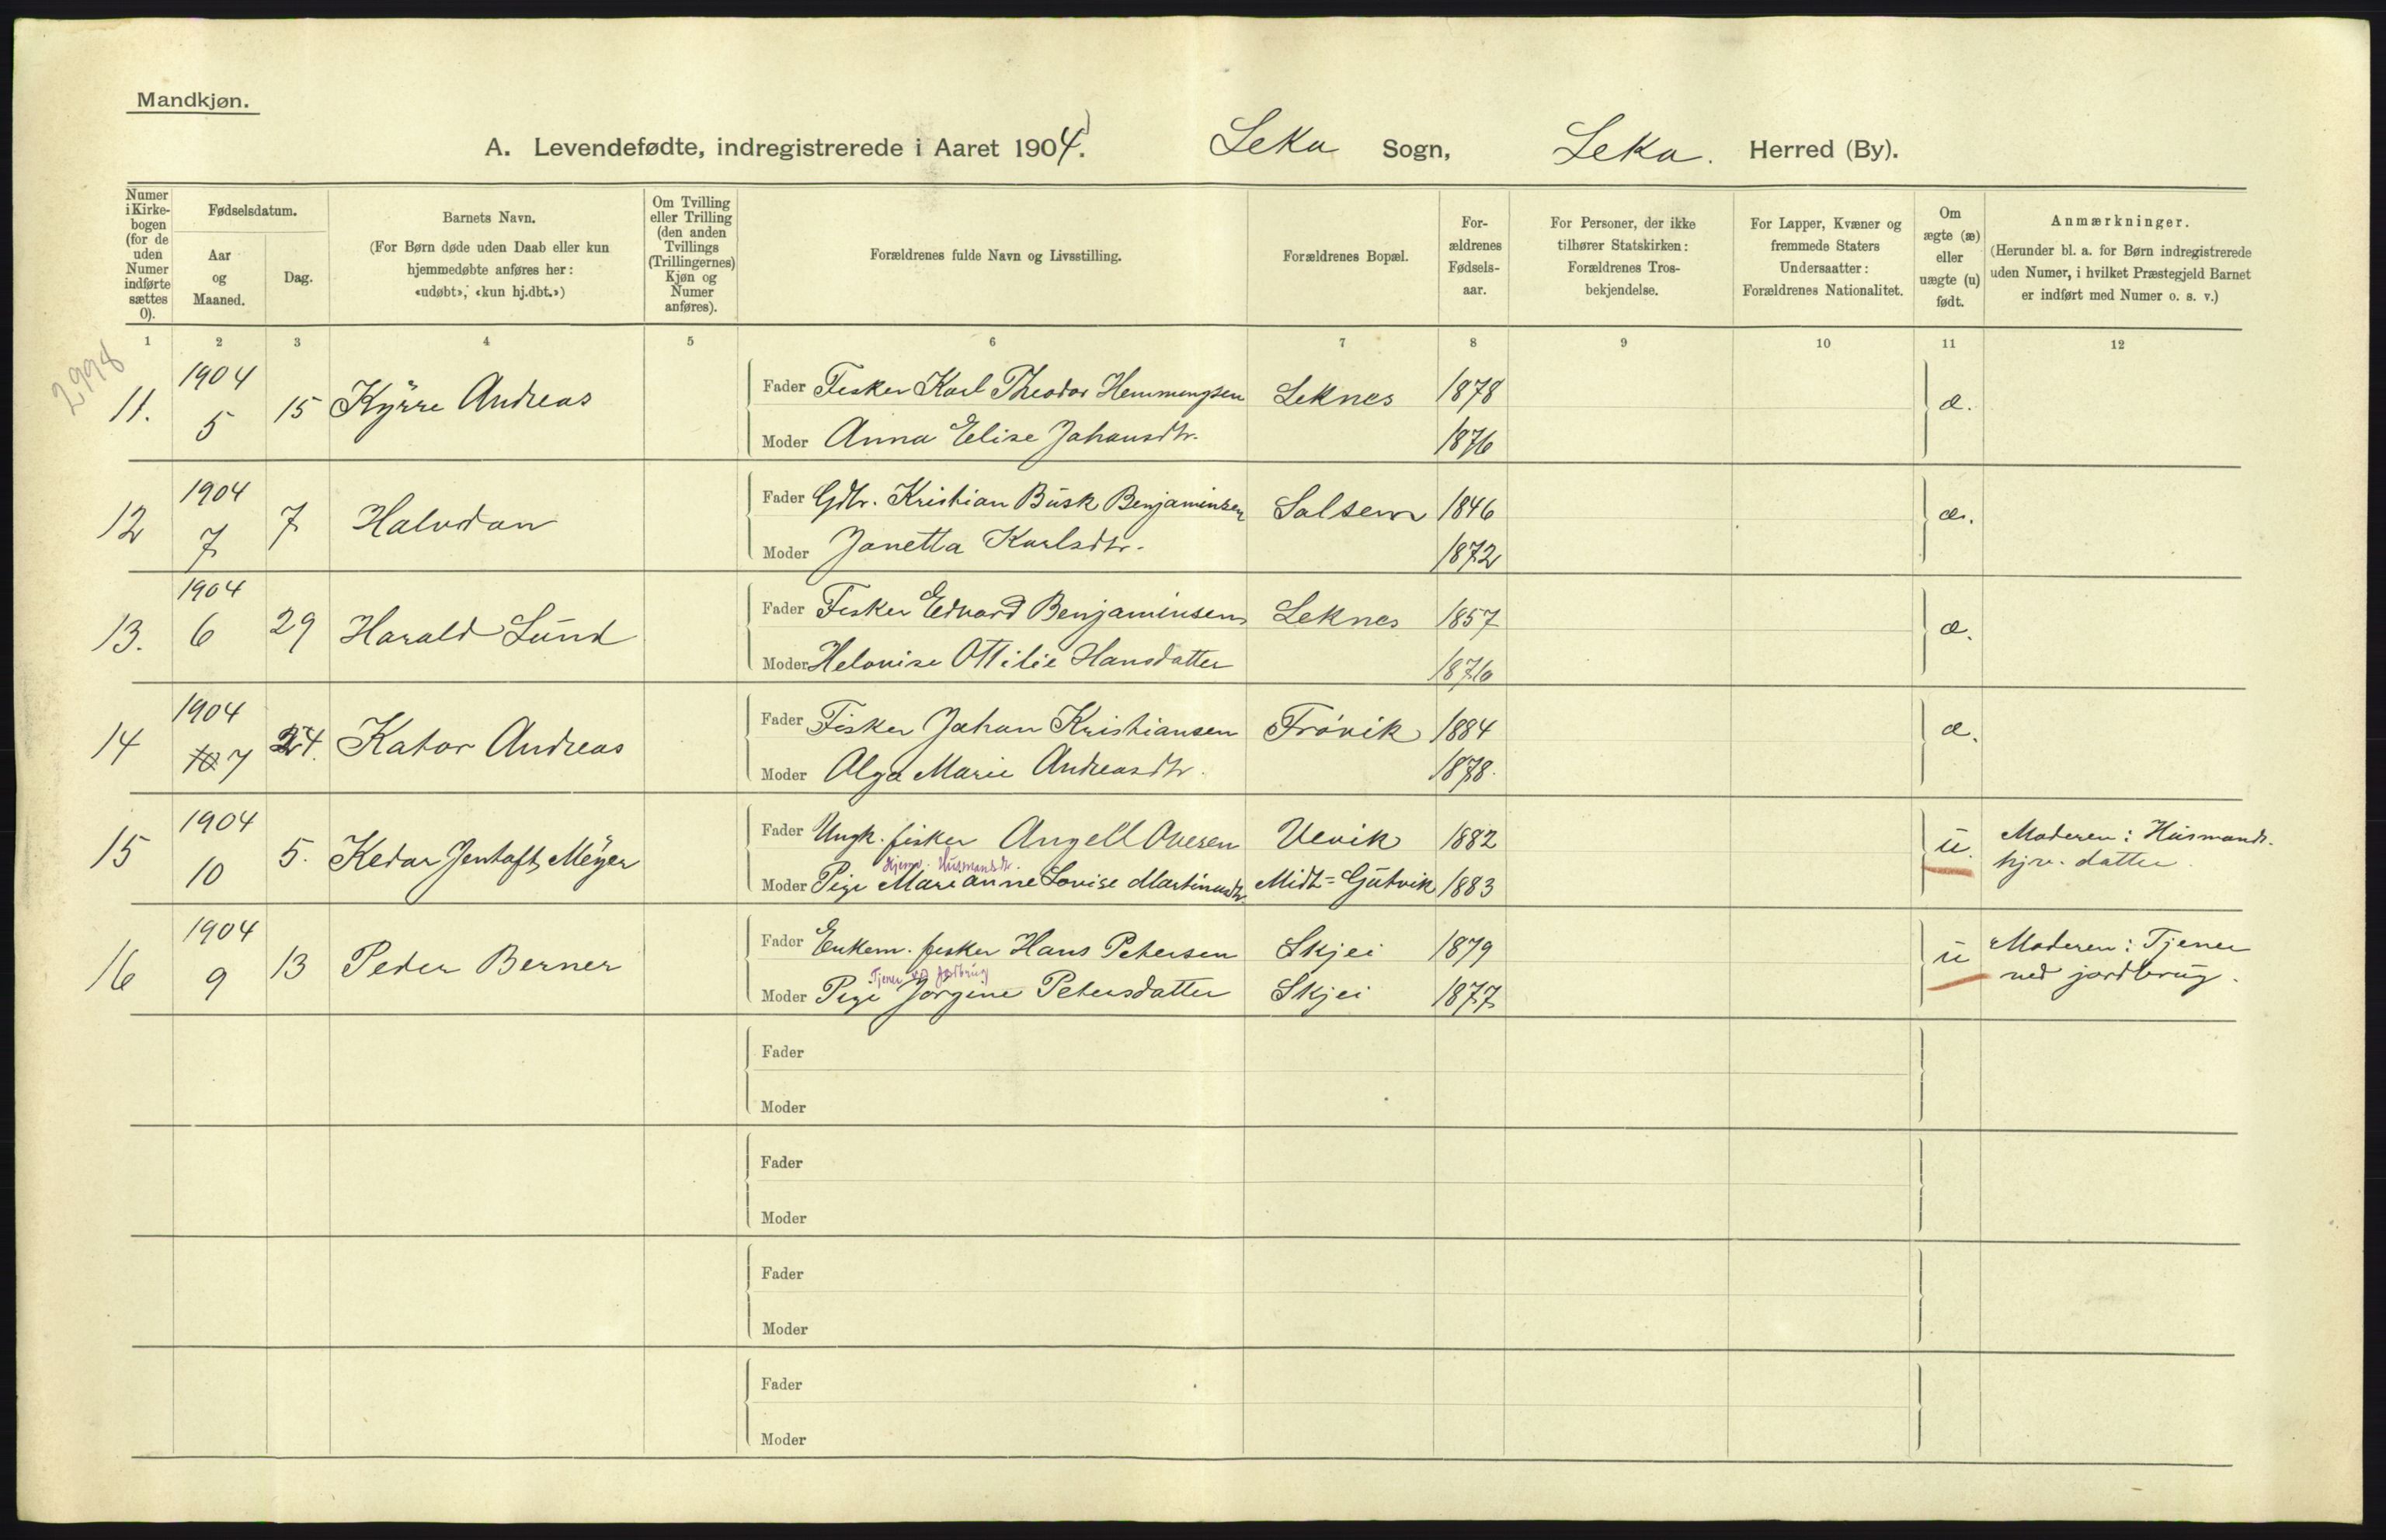 Mandkjøn.
A. Levendefødte, indregistrerede i Aaret 1904. Leka Sogn, Leka. Herred (By).
Numer i Kirke-bogen (for de uden Numer indførte sættes 0).
Fødselsdatum.
Aar og Maaned.
Dag.
Barnets Navn.
(For Børn døde uden Daab eller kun hjemmedøbte anføres her: «udøbt», «kun hj.dbt.»)
Om Tvilling eller Trilling (den anden Tvillings (Trillingernes) Kjøn og Numer anføres).
Forældrenes fulde Navn og Livsstilling.
Forældrenes Bopæl.
For-ældrenes Fødsels-aar.
For Personer, der ikke tilhører Statskirken: Forældrenes Tros-bekjendelse.
For Lapper, Kvæner og fremmede Staters Undersaatter: Forældrenes Nationalitet.
Om ægte (æ) eller uægte (u) født.
Anmærkninger.
(Herunder bl. a. for Børn indregistrerede uden Numer, i hvilket Præstegjeld Barnet er indført med Numer o. s. v.)
1 2 3 4 5 6 7 8 9 10 11 12
2998
11. 1904 5 15 Kyrre Andreas Fader Fisker Karl Theodor Hemmingsen Leknes 1878 æ.
Moder Anna Elise Johansdtr. 1876
12 1904 7 7 Halvdan Fader Gdbr. Kristian Busk Benjaminsen Solsem 1846 æ.
Moder Janetta Karlsdtr. 1872
13. 1904 6 29 Harald Lund Fader Fisker Edvard Benjaminsen Leknes 1857 æ.
Moder Helovise Ottilie Hansdatter 1876
14 1904 10 7 24. Kator Andreas Fader Fisker Johan Kristiansen Frøvik 1884 æ.
Moder Olga Marie Andreasdtr. 1878.
15 1904 10 5. Kedar Jentoft Meyer Fader Ungk. fisker Angell Ovesen Vevik 1882 u. Moderen: Husmands.
hjv. datter.
Hjemv. Husmandsdtr.
Moder Pige Marianne Lovise Martinusdtr. Midt=Gutvik 1883
16 1904 9 13 Peder Berner Fader Enkem. fisker Hans Petersen Skjei 1879 u Moderen: Tjener
ved jordbrug.
Tjener ved jordbrug
Moder Pige Jørgine Petersdatter Skjei 1877
Fader
Moder
Fader
Moder
Fader
Moder
Fader
Moder